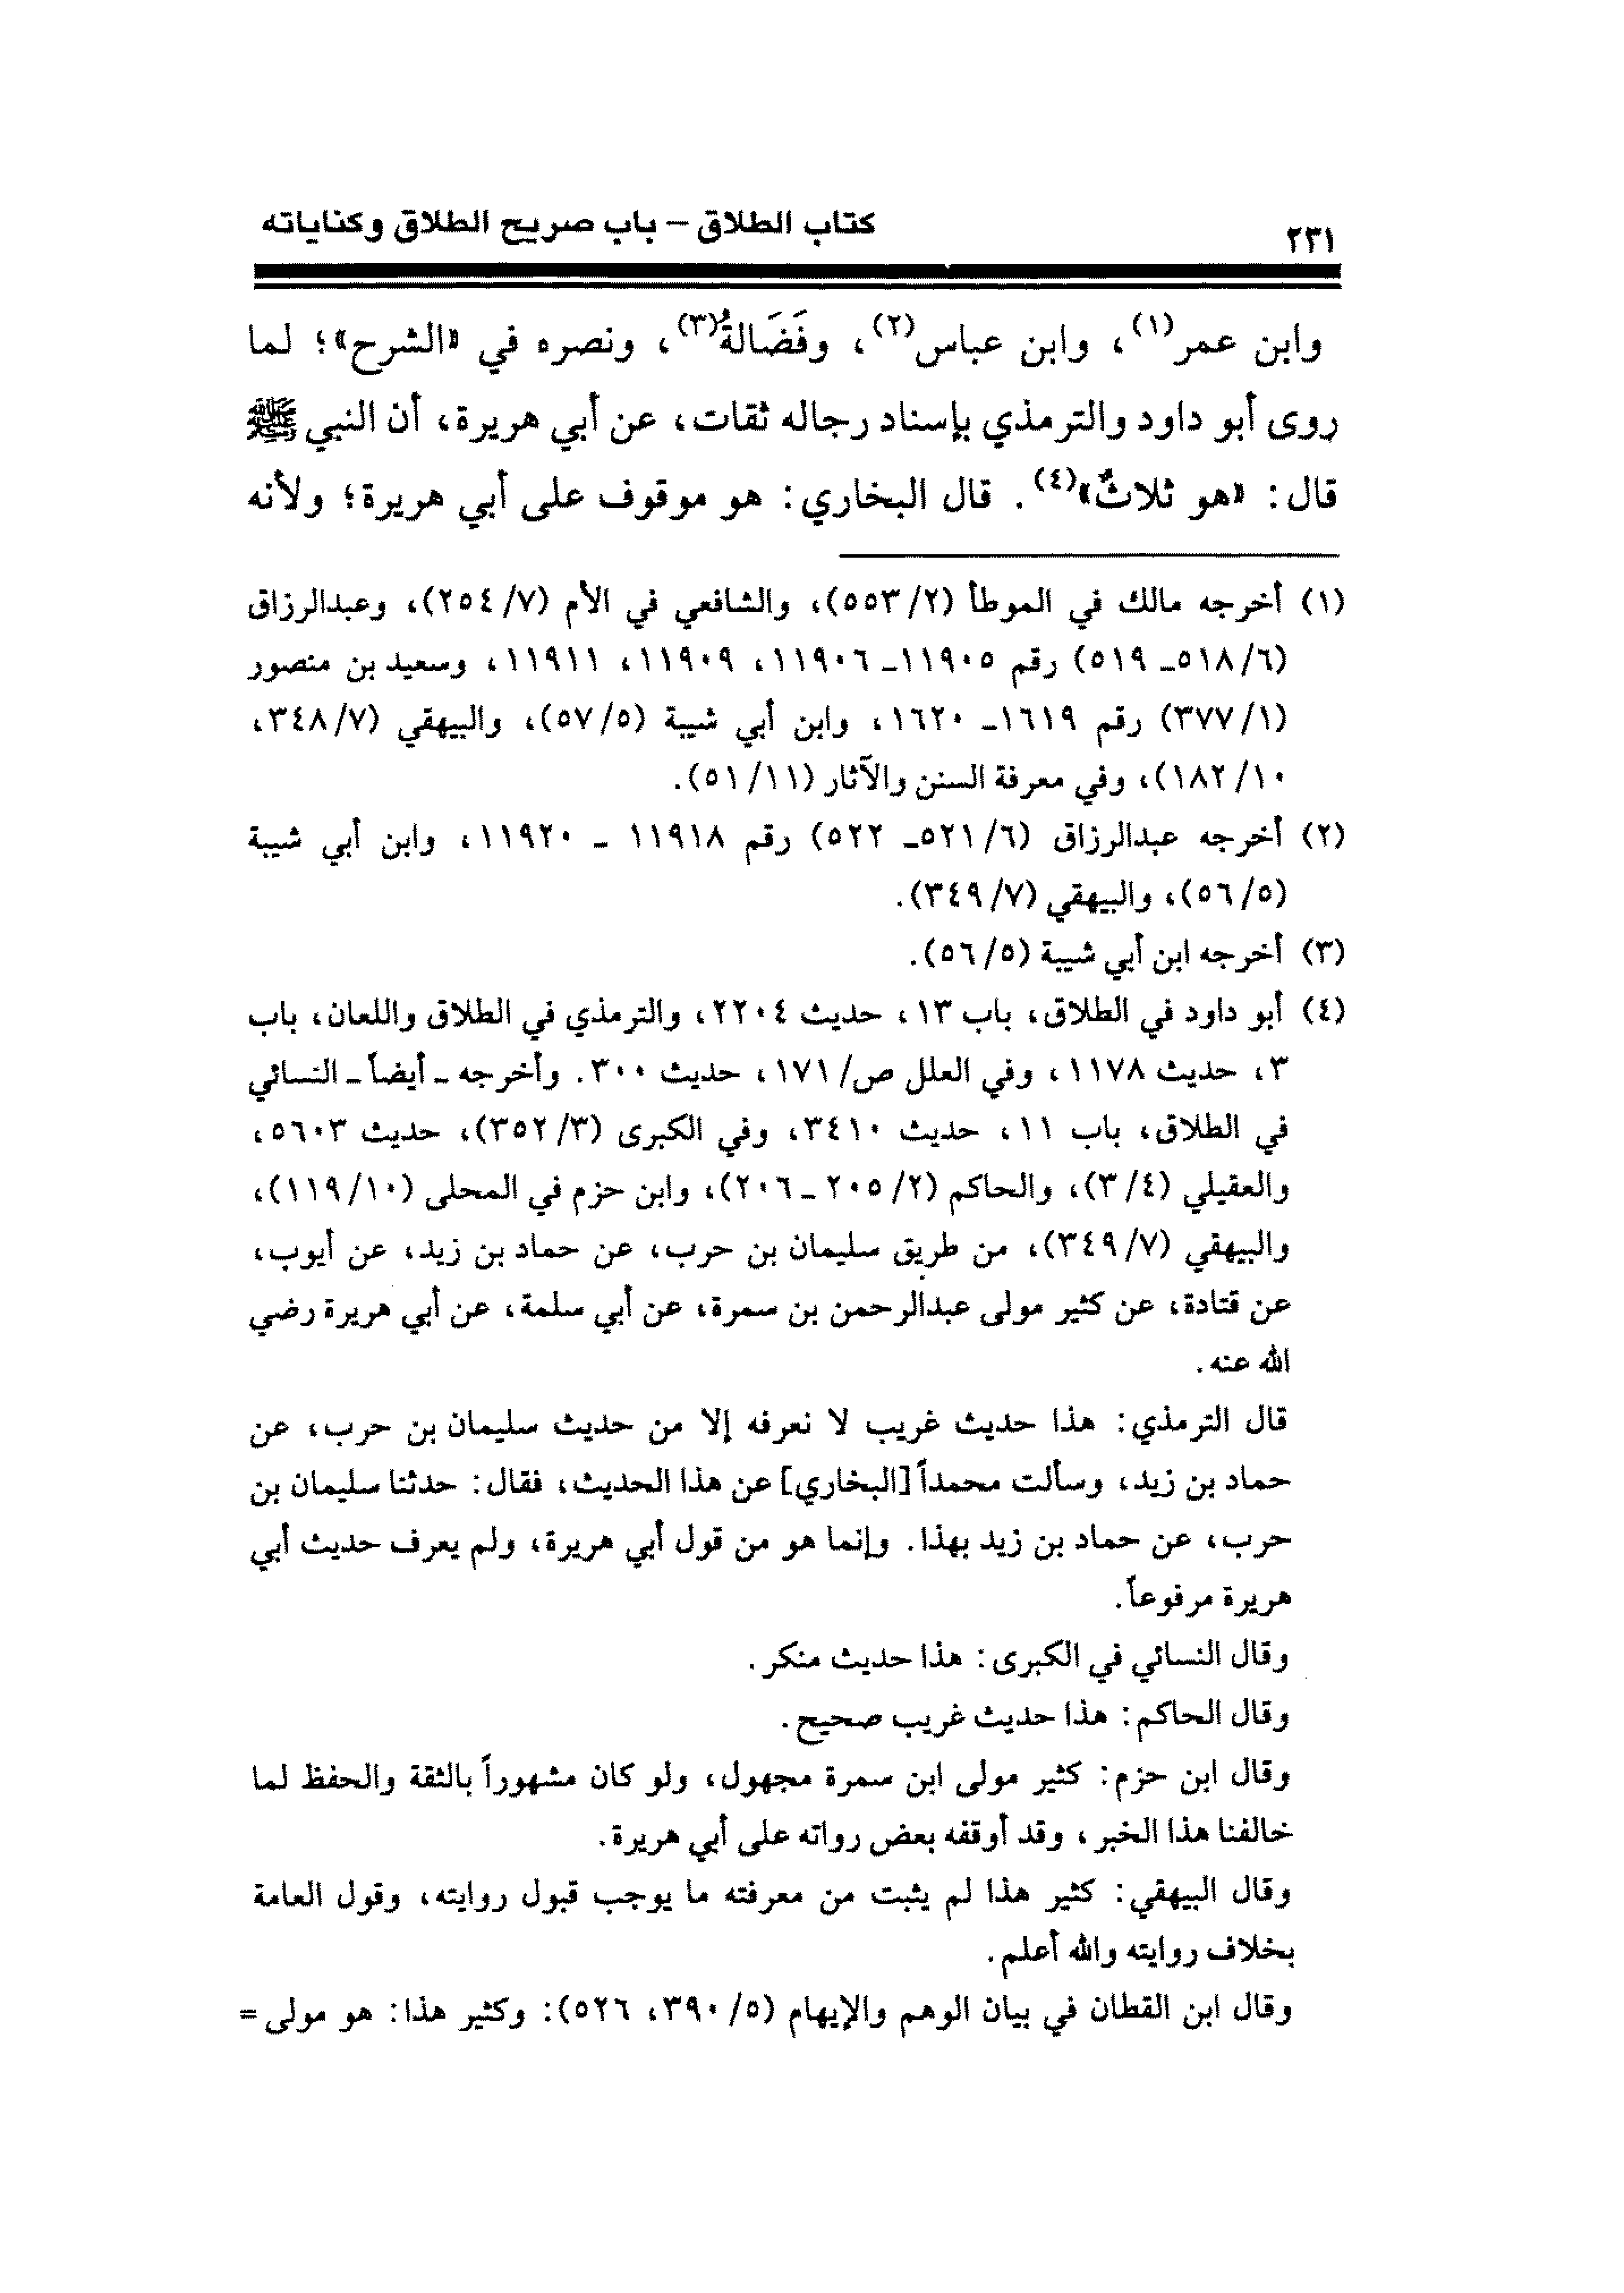 ٢٣١
كتاب الطلاق – باب صريح الطلاق وكناياته
وابن عمر(١)، وابن عباس(٢)، وفَضَالةُ(٣)، ونصره في «الشرح»؛ لما
روى أبو داود والترمذي بإسناد رجاله ثقات، عن أبي هريرة، أن النبي ﷺ
قال: «هو ثلاثٌ»(٤). قال البخاري: هو موقوف على أبي هريرة؛ ولأنه
(١) أخرجه مالك في الموطأ (٢/ ٥٥٣)، والشافعي في الأم (٧/ ٢٥٤)، وعبدالرزاق
(٦/ ٥١٨ـ ٥١٩) رقم ١١٩٠٥ـ ١١٩٠٦، ١١٩٠٩، ١١٩١١، وسعيد بن منصور
(١/ ٣٧٧) رقم ١٦١٩ـ ١٦٢٠، وابن أبي شيبة (٥/ ٥٧)، والبيهقي (٧/ ٣٤٨،
١٠/ ١٨٢)، وفي معرفة السنن والآثار (١١/ ٥١).
(٢) أخرجه عبدالرزاق (٦/ ٥٢١ـ ٥٢٢) رقم ١١٩١٨ ـ ١١٩٢٠، وابن أبي شيبة
(٥/ ٥٦)، والبيهقي (٧/ ٣٤٩).
(٣) أخرجه ابن أبي شيبة (٥/ ٥٦).
(٤) أبو داود في الطلاق، باب ١٣، حديث ٢٢٠٤، والترمذي في الطلاق واللعان، باب
٣، حديث ١١٧٨، وفي العلل ص/ ١٧١، حديث ٣٠٠. وأخرجه ـ أيضاً ـ النسائي
في الطلاق، باب ١١، حديث ٣٤١٠، وفي الكبرى (٣/ ٣٥٢)، حديث ٥٦٠٣،
والعقيلي (٤/ ٣)، والحاكم (٢/ ٢٠٥ ـ ٢٠٦)، وابن حزم في المحلى (١٠/ ١١٩)،
والبيهقي (٧/ ٣٤٩)، من طريق سليمان بن حرب، عن حماد بن زيد، عن أيوب،
عن قتادة، عن كثير مولى عبدالرحمن بن سمرة، عن أبي سلمة، عن أبي هريرة رضي
الله عنه.
قال الترمذي: هذا حديث غريب لا نعرفه إلا من حديث سليمان بن حرب، عن
حماد بن زيد، وسألت محمداً [البخاري] عن هذا الحديث، فقال: حدثنا سليمان بن
حرب، عن حماد بن زيد بهذا. وإنما هو من قول أبي هريرة، ولم يعرف حديث أبي
هريرة مرفوعاً.
وقال النسائي في الكبرى: هذا حديث منكر.
وقال الحاكم: هذا حديث غريب صحيح.
وقال ابن حزم: كثير مولى ابن سمرة مجهول، ولو كان مشهوراً بالثقة والحفظ لما
خالفنا هذا الخبر، وقد أوقفه بعض رواته على أبي هريرة.
وقال البيهقي: كثير هذا لم يثبت من معرفته ما يوجب قبول روايته، وقول العامة
بخلاف روايته والله أعلم.
وقال ابن القطان في بيان الوهم والإيهام (٥/ ٣٩٠، ٥٢٦): وكثير هذا: هو مولى =